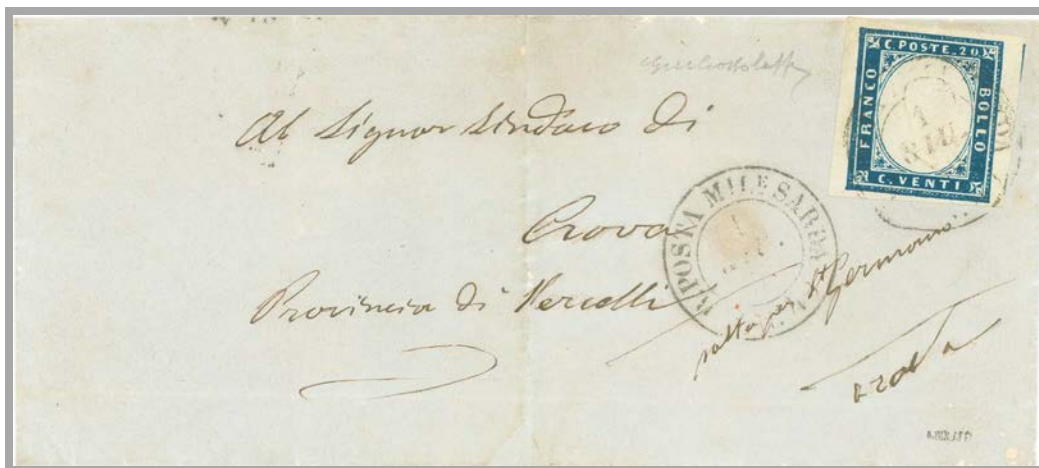 C. POSTE. 20
FRANCO
BOLLO
C. VENTI
1
GIU
Al Signor Sindaco di
Crova
Provincia di Vercelli
R. POSTA MIL.E SARDA
1
per St Germano